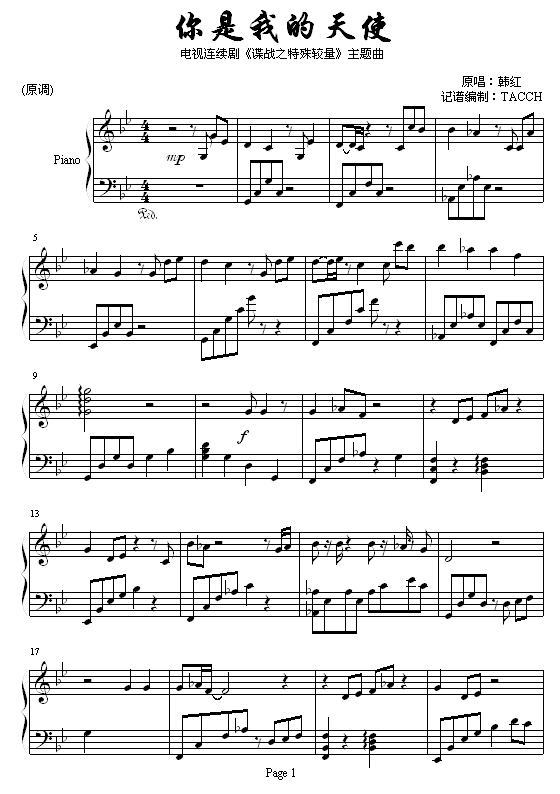 你是我的天使
电视连续剧《谍战之特殊较量》主题曲
原唱：韩红
(原调)
记谱编制：TACCH
Piano
mp
Ped.
5
9
f
13
17
Page 1